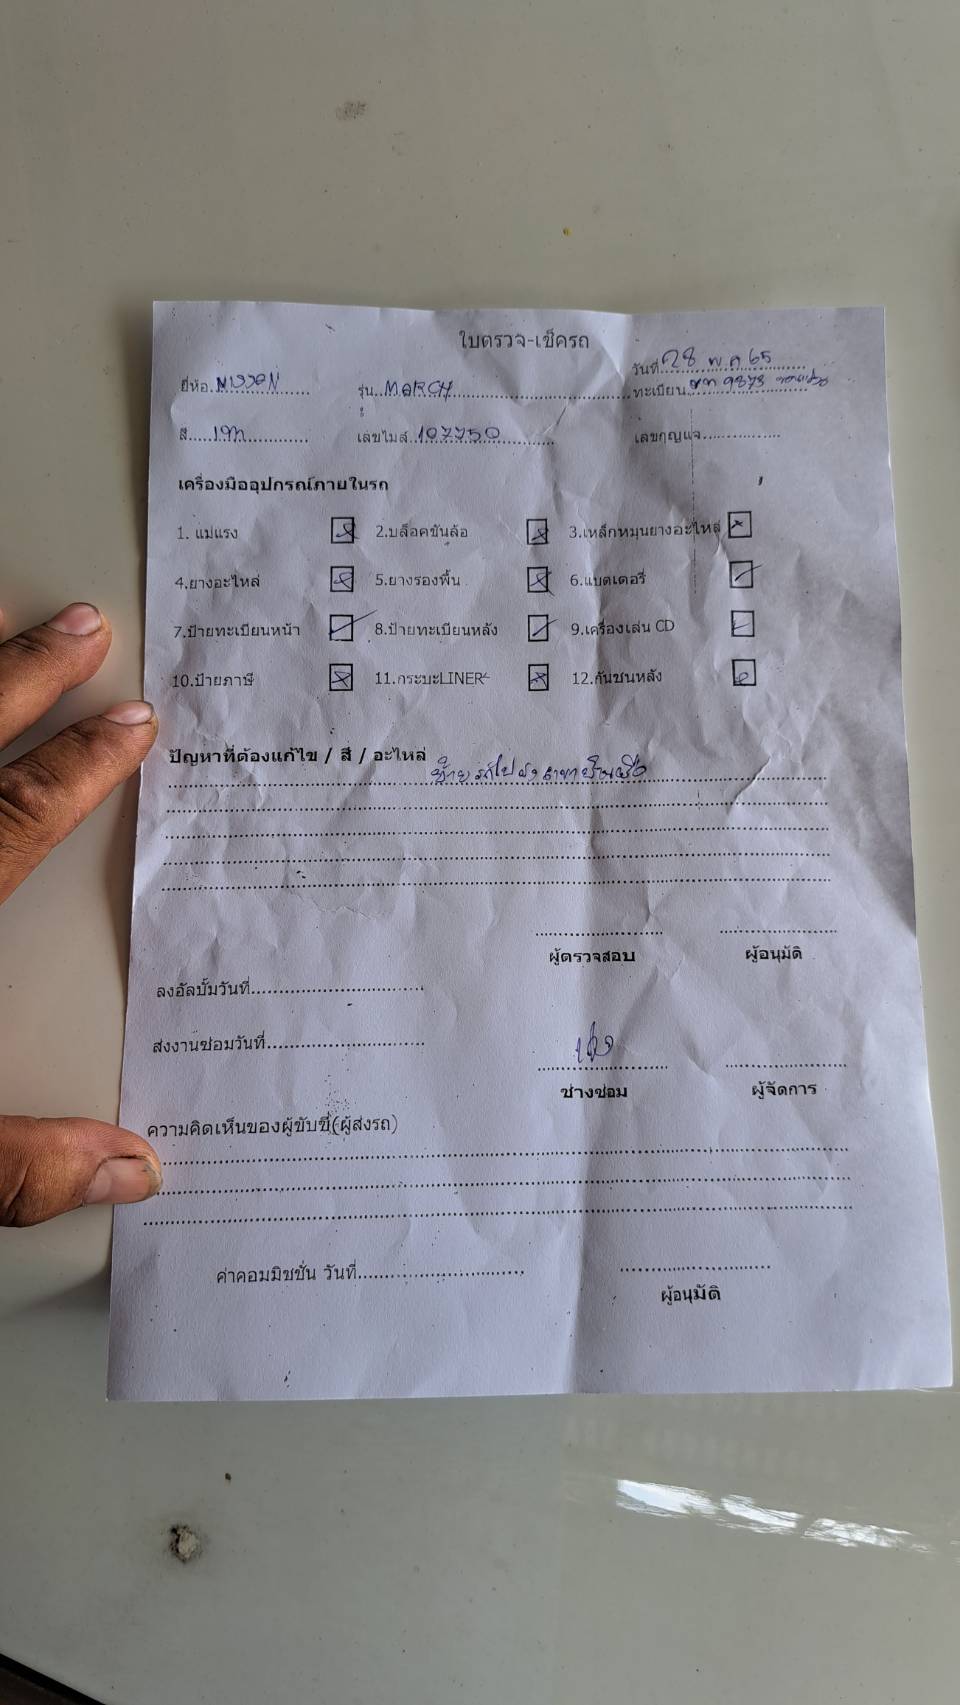 ใบตรวจ-เช็ครถ
วันที่ 28 พ ค 65
ยี่ห้อ NISSAN รุ่น MARCH ทะเบียน 9873
สี เทา เลขไมล์ 107750 เลขกุญแจ
เครื่องมืออุปกรณ์ภายในรถ
1. แม่แรง 2.บล็อคขันล้อ 3.เหล็กหมุนยางอะไหล่
4.ยางอะไหล่ 5.ยางรองพื้น 6.แบตเตอรี่
7.ป้ายทะเบียนหน้า 8.ป้ายทะเบียนหลัง 9.เครื่องเล่น CD
10.ป้ายภาษี 11.กระบะLINER 12.กันชนหลัง
ปัญหาที่ต้องแก้ไข / สี / อะไหล่
ย้ายรถไปยังสาขา
ผู้ตรวจสอบ ผู้อนุมัติ
ลงอัลบั้มวันที่
ส่งงานซ่อมวันที่
ช่างซ่อม ผู้จัดการ
ความคิดเห็นของผู้ขับขี่(ผู้ส่งรถ)
ค่าคอมมิชชั่น วันที่
ผู้อนุมัติ